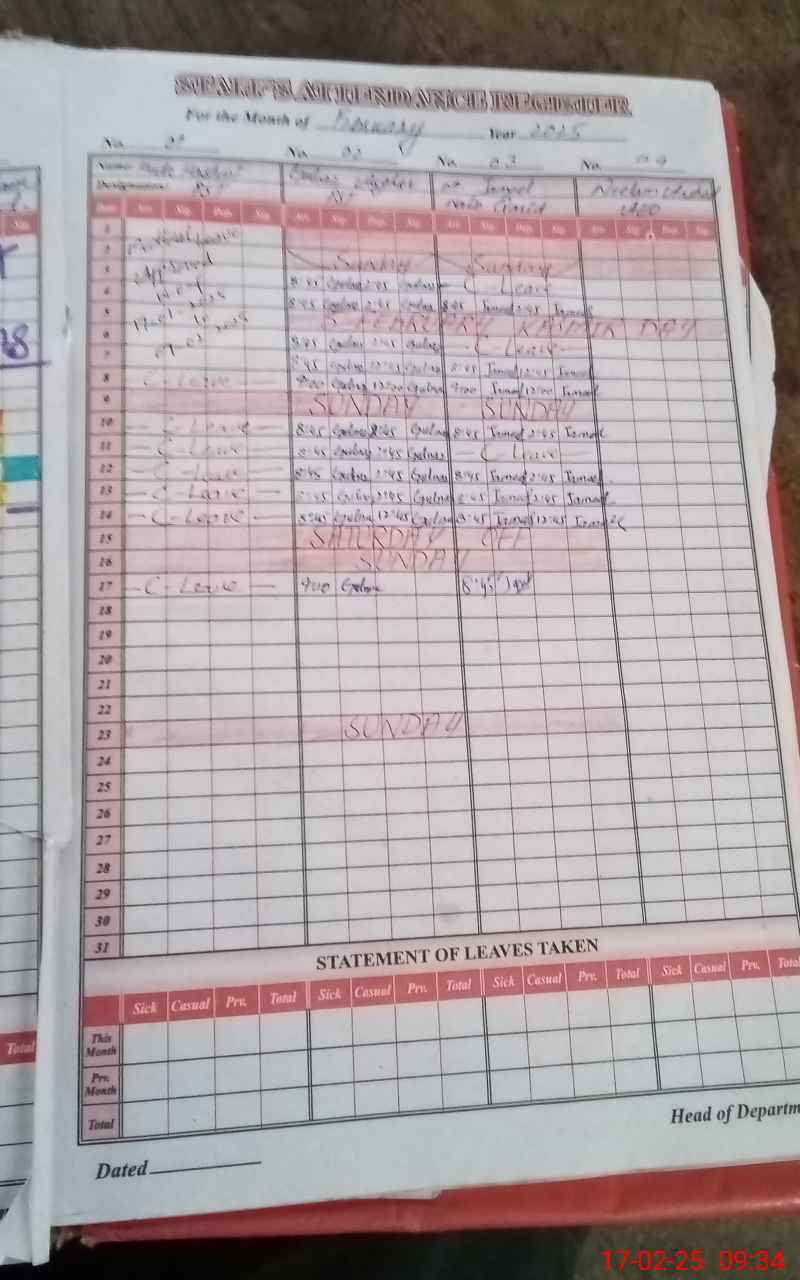 STAFF'S ATTENDANCE REGISTER
For the Month of February Year 2025
No. 01 No. 02 No. 03 No. 04
Name
Designation
Date Arr. Sig. Dep. Sig. Arr. Sig. Dep. Sig. Arr. Sig. Dep. Sig. Arr. Sig. Dep. Sig.
1
2 Sunday Sunday
3 Approved 8:45 Gulnaz 2:45 Gulnaz C-Leave
4 8:45 Gulnaz 2:45 Gulnaz 8:45 Jameel 2:45 Jameel
5 5 FEBRUARY KASHMIR DAY
6 8:45 Gulnaz 2:45 Gulnaz C-Leave
7 8:45 Gulnaz 12:45 Gulnaz 8:45 Jameel 12:45 Jameel
8 C-Leave 9:00 Gulnaz 12:00 Gulnaz 9:00 Jameel 12:00 Jameel
9 SUNDAY SUNDAY
10 - C-Leave - 8:45 Gulnaz 2:45 Gulnaz 8:45 Jameel 2:45 Jameel
11 - C-Leave - 8:45 Gulnaz 2:45 Gulnaz - C Leave
12 - C-Leave - 8:45 Gulnaz 2:45 Gulnaz 8:45 Jameel 2:45 Jameel
13 - C-Leave - 8:45 Gulnaz 2:45 Gulnaz 8:45 Jameel 2:45 Jameel
14 - C-Leave - 8:45 Gulnaz 12:45 Gulnaz 8:45 Jameel 12:45 Jameel
15 SATURDAY OFF
16 SUNDAY
17 - C-Leave - 9:00 Gulnaz 8:45
18
19
20
21
22
23 SUNDAY
24
25
26
27
28
29
30
31
STATEMENT OF LEAVES TAKEN
Sick Casual Prv. Total Sick Casual Prv. Total Sick Casual Prv. Total Sick Casual Prv. Total
This Month
Prv. Month
Total
Total
Head of Departm
Dated
17-02-25 09:34